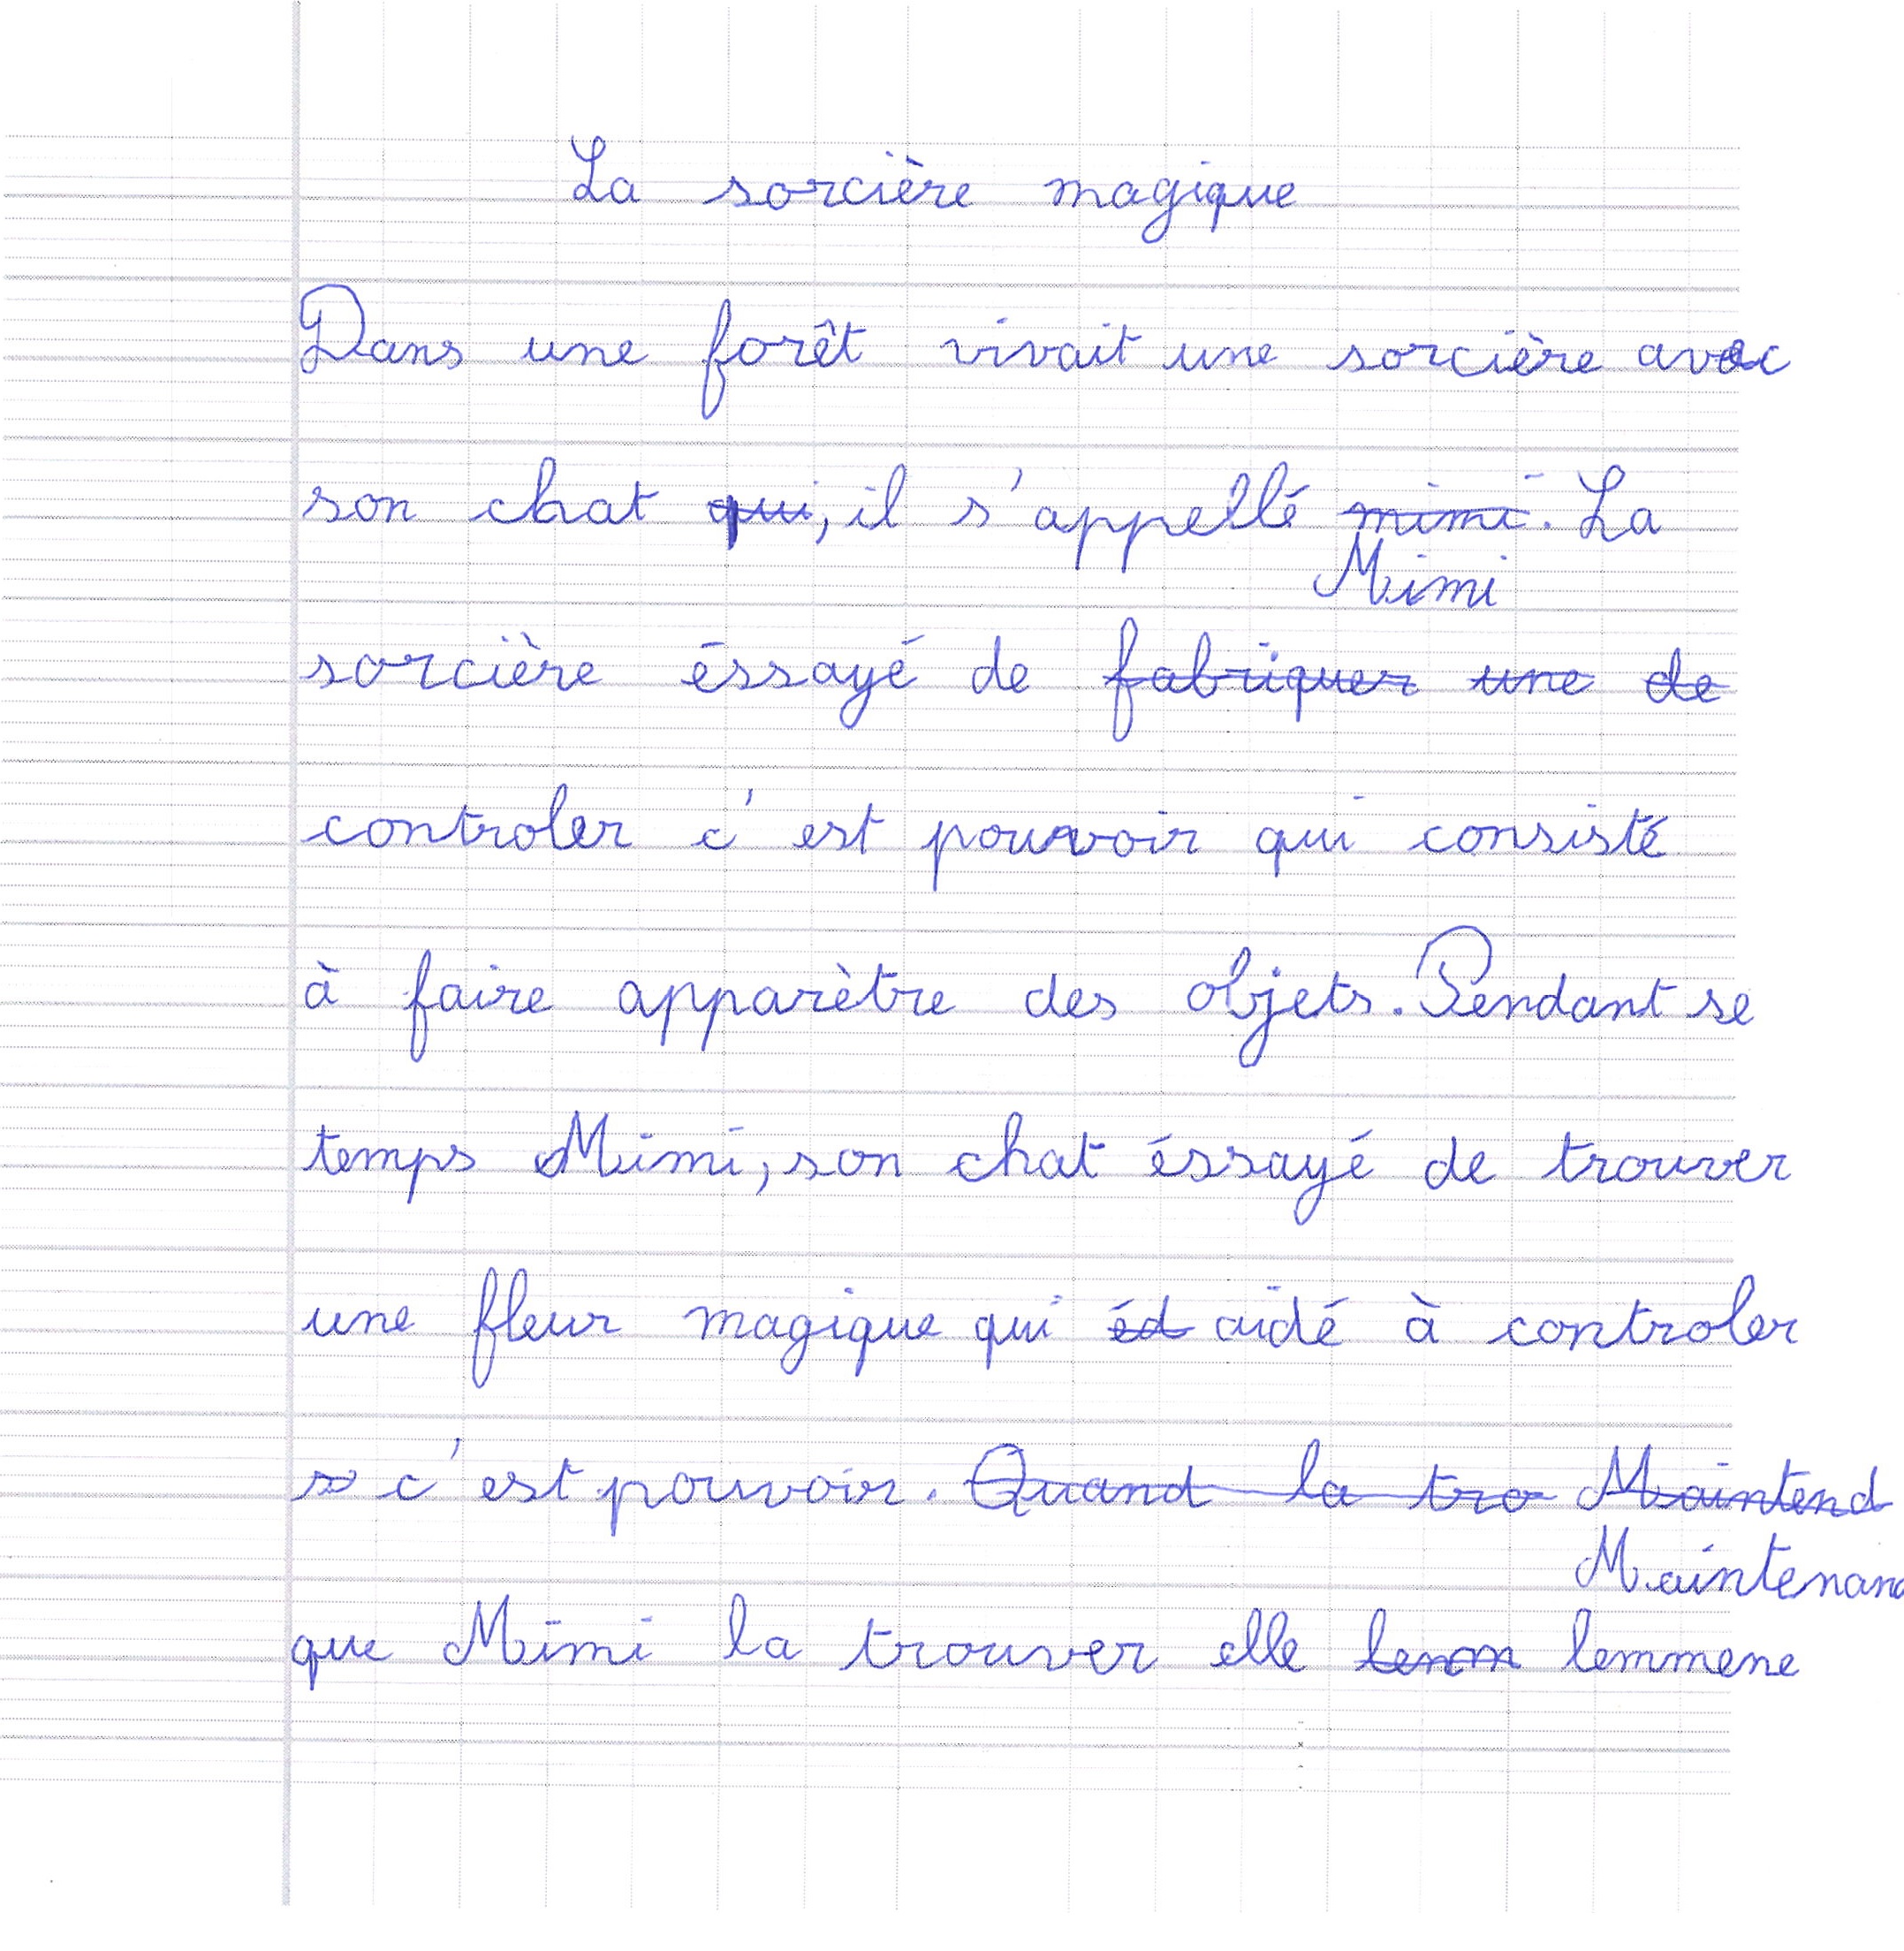 La sorcière magique
Dans une forêt vivait une sorcière avec
son chat qui, il s'appellé mimi. La
Mimi
sorcière éssayé de fabriquer une de
controler c'est pouvoir qui consisté
à faire apparètre des objets. Pendant se
temps Mimi, son chat éssayé de trouver
une fleur magique qui éd aidé à controler
c'est pouvoir. Quand la tro Maintend
Maintenand
que Mimi la trouver elle lenm lemmene